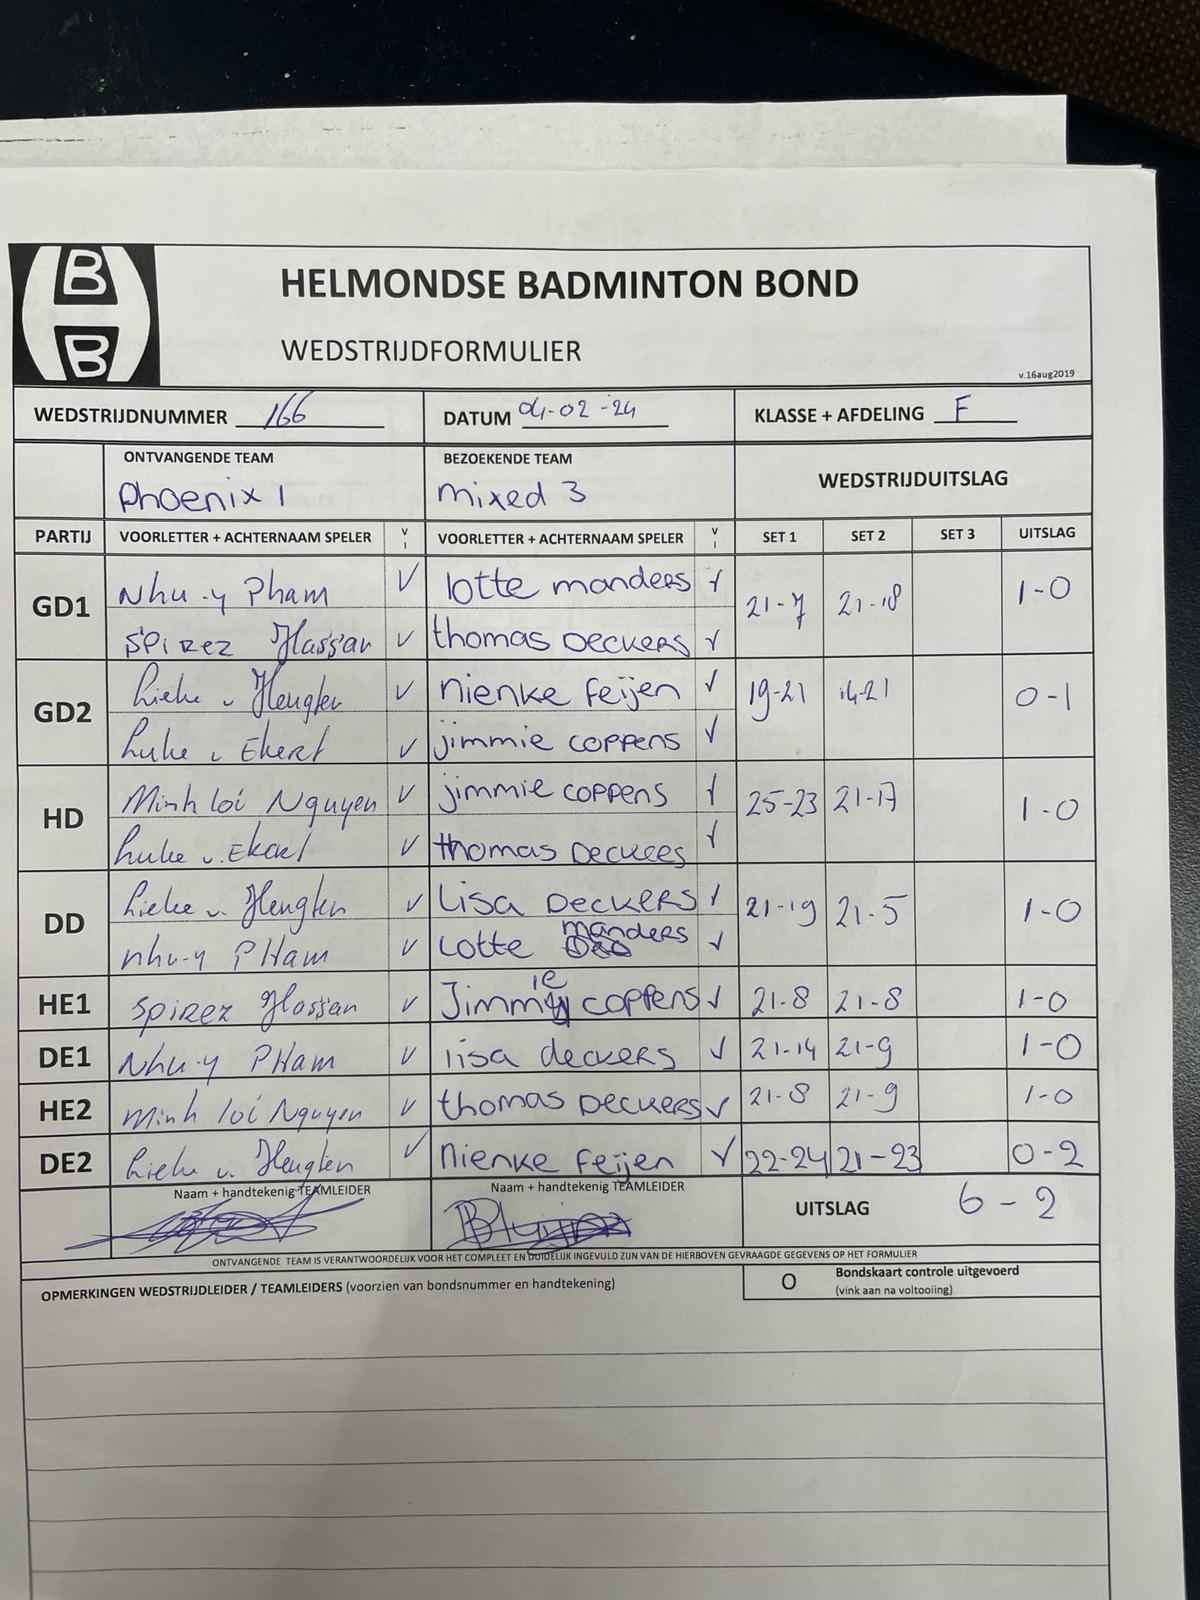 B
B
HELMONDSE BADMINTON BOND
WEDSTRIJDFORMULIER
v.16aug2019
WEDSTRIJDNUMMER 166 DATUM 04-02-24 KLASSE + AFDELING F
ONTVANGENDE TEAM BEZOEKENDE TEAM WEDSTRIJDUITSLAG
Phoenix 1 mixed 3
PARTIJ VOORLETTER + ACHTERNAAM SPELER V I VOORLETTER + ACHTERNAAM SPELER V I SET 1 SET 2 SET 3 UITSLAG
GD1 Nhu-y Pham V lotte manders V 21-7 21-18 1-0
SPIREZ Hassan V thomas DECKERS V
GD2 Lieke v Heugten V nienke feijen V 19-21 14-21 0-1
Luke v Ekert V jimmie coppens V
HD Minh loi Nguyen V jimmie coppens V 25-23 21-17 1-0
Luke v. Ekert V thomas Deckers V
DD Lieke v. Heugten V Lisa DECKERS V 21-19 21-5 1-0
nhu-y PHam V Lotte manders V
HE1 Spirez Hassan V Jimmie coppens V 21-8 21-8 1-0
DE1 Nhu-y PHam V lisa deckers V 21-14 21-9 1-0
HE2 Minh loi Nguyen V thomas Deckers V 21-8 21-9 1-0
DE2 Lieke v. Heugten V nienke feijen V 22-24 21-23 0-2
Naam + handtekenig TEAMLEIDER Naam + handtekenig TEAMLEIDER UITSLAG 6-2
ONTVANGENDE TEAM IS VERANTWOORDELIJK VOOR HET COMPLEET EN DUIDELIJK INGEVULD ZIJN VAN DE HIERBOVEN GEVRAAGDE GEGEVENS OP HET FORMULIER
OPMERKINGEN WEDSTRIJDLEIDER / TEAMLEIDERS (voorzien van bondsnummer en handtekening) O Bondskaart controle uitgevoerd
(vink aan na voltooiing)